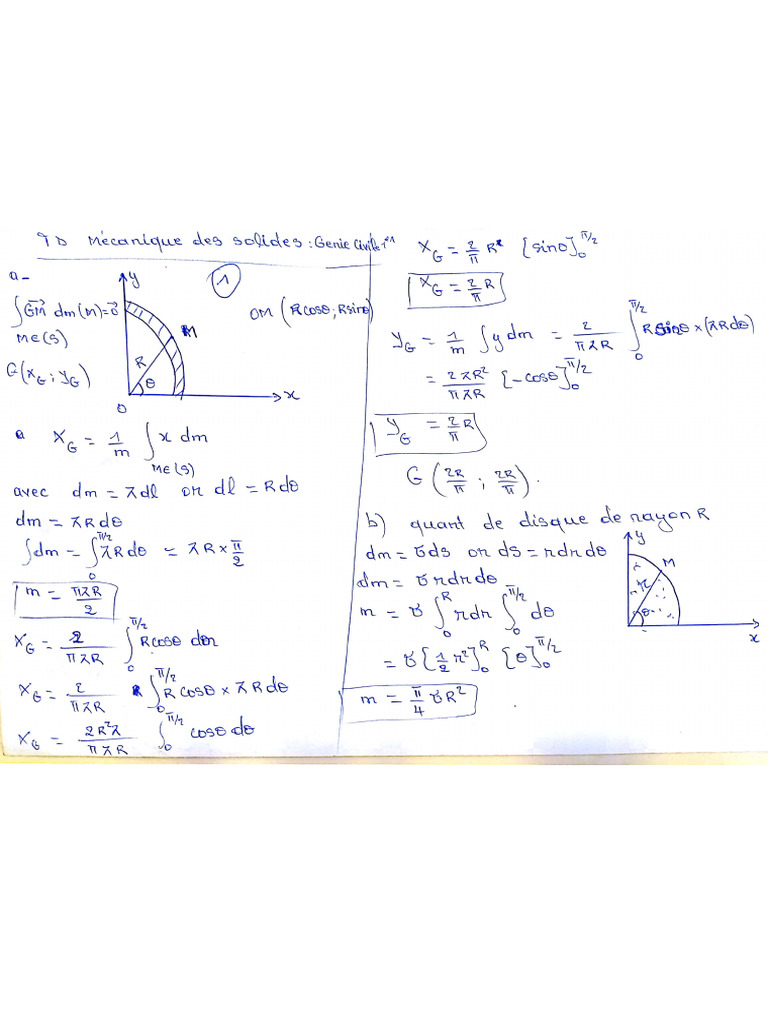 TD Mécanique des solides : Genie Civile 1
a-
1
y
∫ GM⃗ dm(M) = 0⃗
M∈(S)
G(x_G ; y_G)
OM (Rcosθ ; Rsinθ)
M
R
θ
O
x
a X_G = 1/m ∫_{M∈(S)} x dm
avec dm = λdl or dl = Rdθ
dm = λRdθ
∫dm = ∫_0^{π/2} λRdθ = λR × π/2
m = πλR/2
X_G = 2/πλR ∫_0^{π/2} Rcosθ dm
X_G = 2/πλR ∫_0^{π/2} Rcosθ × λRdθ
X_G = 2R²λ/πλR ∫_0^{π/2} cosθ dθ
X_G = 2/π R [sinθ]_0^{π/2}
X_G = 2/π R
y_G = 1/m ∫ y dm = 2/πλR ∫_0^{π/2} Rsinθ × (λRdθ)
= 2λR²/πλR [-cosθ]_0^{π/2}
y_G = 2/π R
G (2R/π ; 2R/π).
b) quart de disque de rayon R
dm = σds or ds = rdrdθ
dm = σrdrdθ
y
M
r
θ
x
m = σ ∫_0^R rdr ∫_0^{π/2} dθ
= σ [1/2 r²]_0^R [θ]_0^{π/2}
m = π/4 σR²